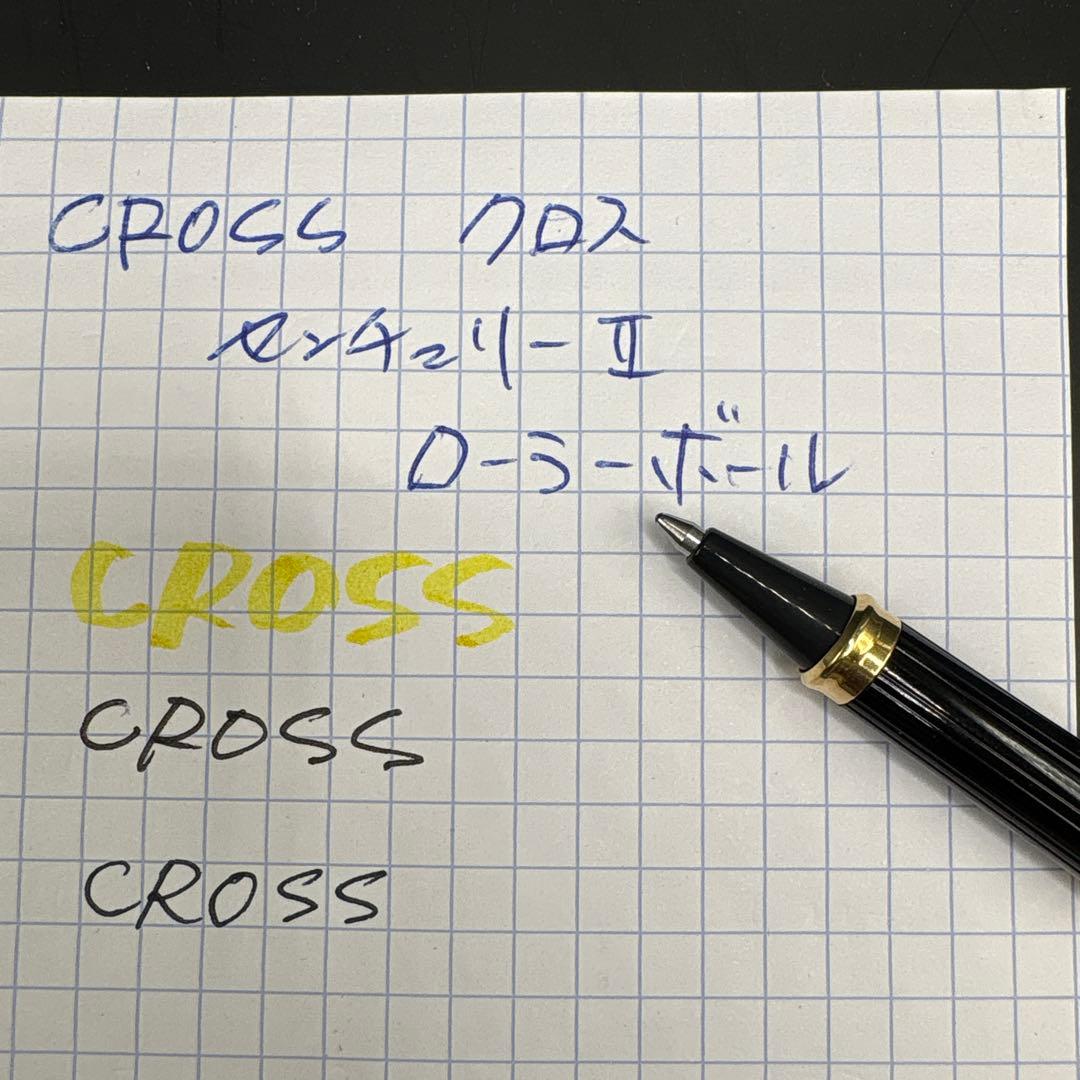 CROSS クロス
センチュリーⅡ
ローラーボール
CROSS
CROSS
CROSS